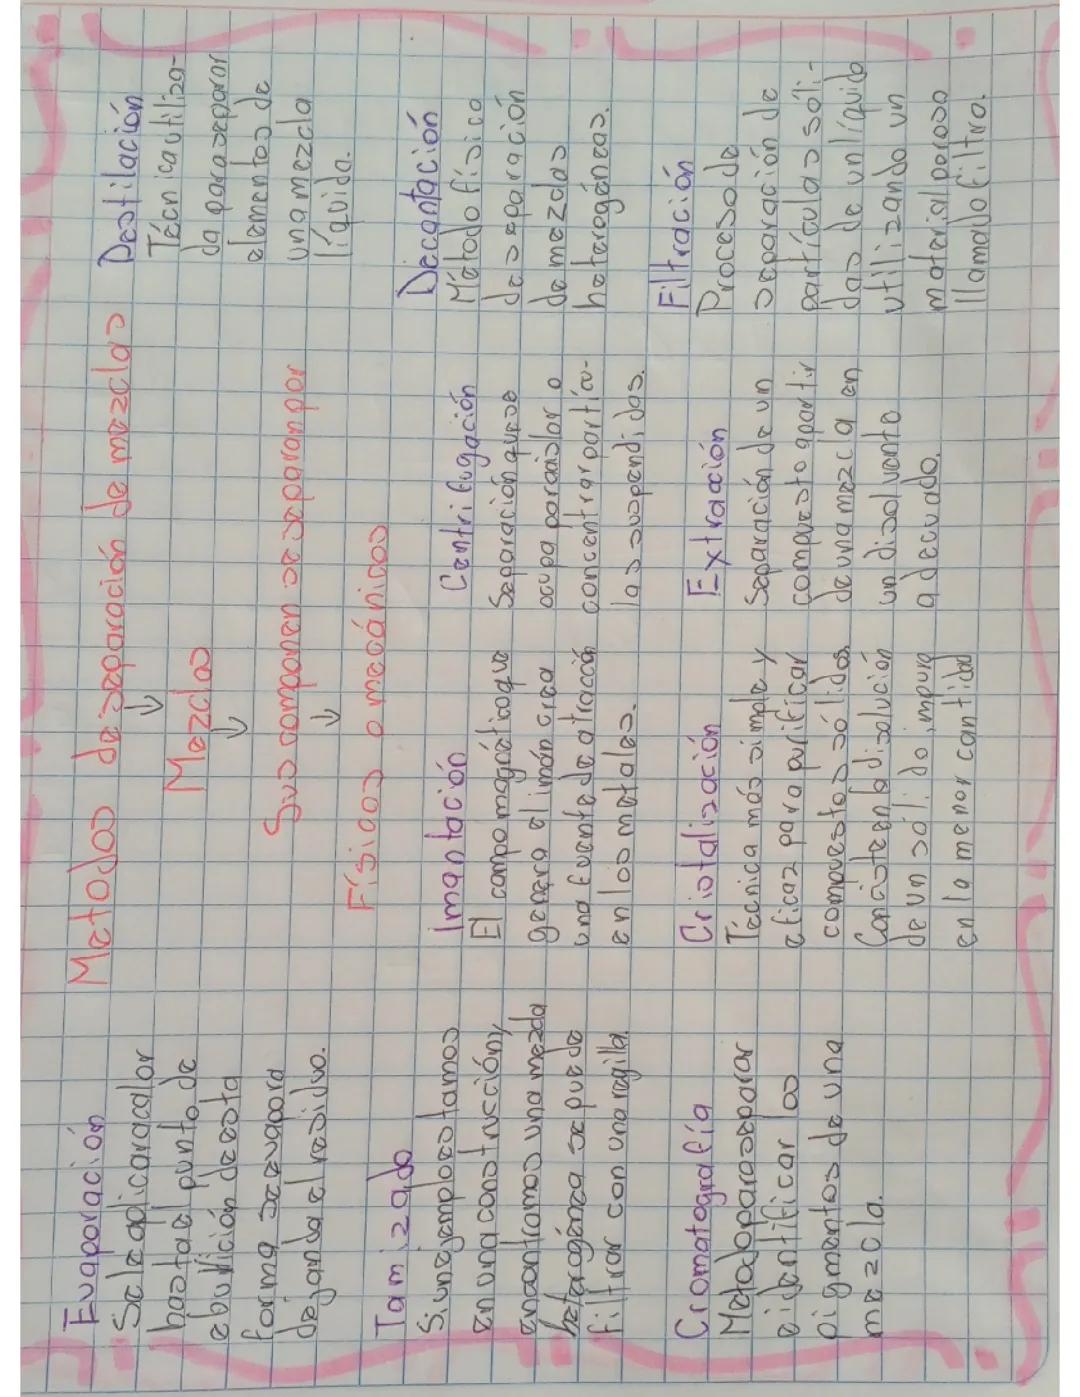 Metodos de separación de mezclas
Mezclas
Sus componen se separan por
Físicos o mecánicos
Evaporación
Se le aplicara calor
hasta el punto de
ebullición de esta
forma se evapora
dejando el residuo.
Tamizado
Si un ejemplo estamos
en una construcción y
encontramos una mezcla
heterogénea se puede
filtrar con una regilla.
Cromatografía
Metodo para separar
e identificar los
pigmentos de una
mezcla.
Imantación
El campo magnético que
genera el imán crea
una fuente de atracción
en los metales.
Cristalización
Técnica más simple y
eficaz para purificar
compuestos sólidos
Consiste en la disolución
de un sólido impuro
en la menor cantidad
Centrifugación
Separación que se
ocupa para aislar o
concentrar partícu-
las suspendidas.
Extracción
Separación de un
compuesto apartir
de una mezcla en
un disolvente
adecuado.
Destilación
Técnica utiliza-
da para separar
elementos de
una mezcla
líquida.
Decantación
Método físico
de separación
de mezclas
heterogéneas.
Filtración
Proceso de
separación de
partículas sóli-
das de un líquido
utilizando un
material poroso
llamado filtro.